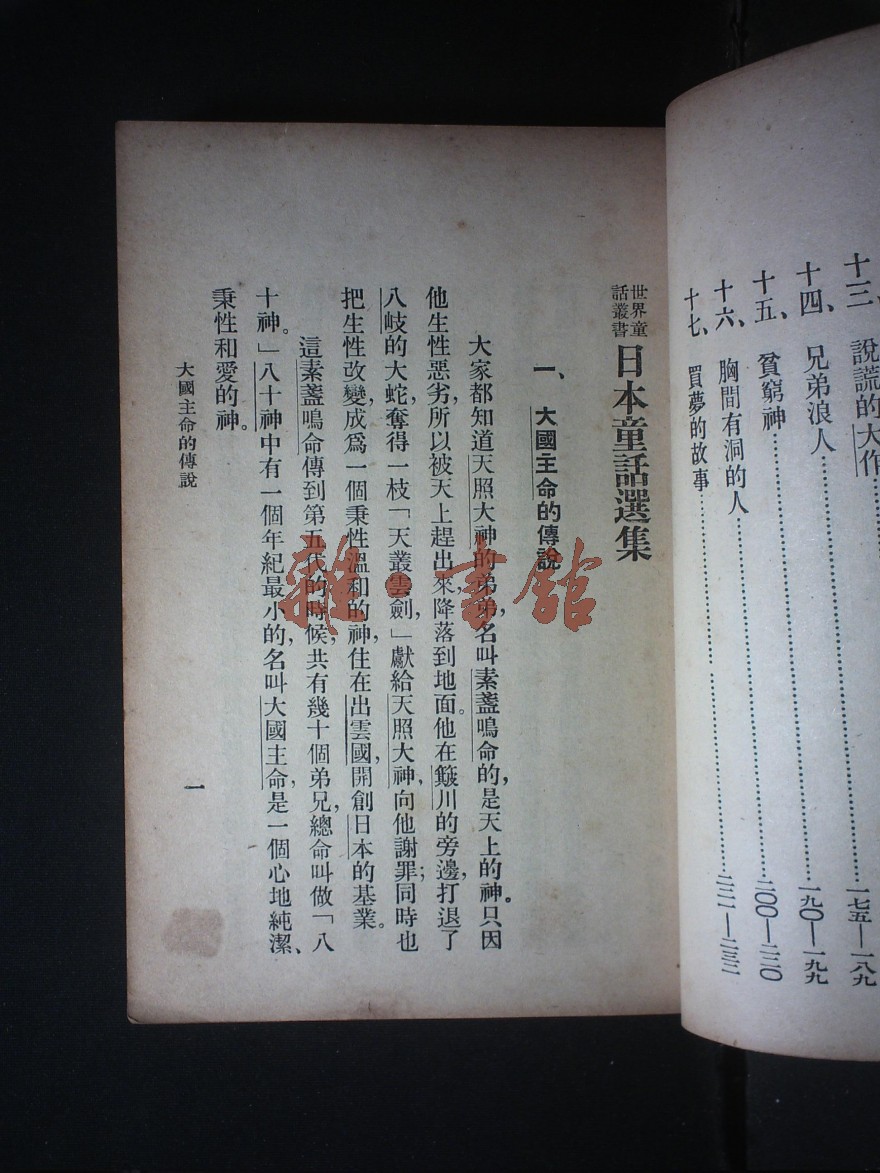 十三、說謊的大作…………一七五—一八九
十四、兄弟浪人…………一九〇—一九九
十五、貧窮神…………二〇〇—二二〇
十六、胸間有洞的人…………二二一—二三二
十七、買夢的故事…………
世界童話叢書
日本童話選集
一、大國主命的傳說
大家都知道天照大神的弟弟，名叫素盞鳴命的，是天上的神。只因
他生性惡劣，所以被天上趕出來，降落到地面。他在簸川的旁邊，打退了
八岐的大蛇，奪得一枝「天叢雲劍，」獻給天照大神，向他謝罪；同時也
把生性改變，成爲一個秉性溫和的神，住在出雲國，開創日本的基業。
這素盞鳴命傳到第五代的時候，共有幾十個弟兄，總命叫做「八
十神。」八十神中有一個年紀最小的，名叫大國主命，是一個心地純潔、
秉性和愛的神。
大國主命的傳說
一
雜·書館